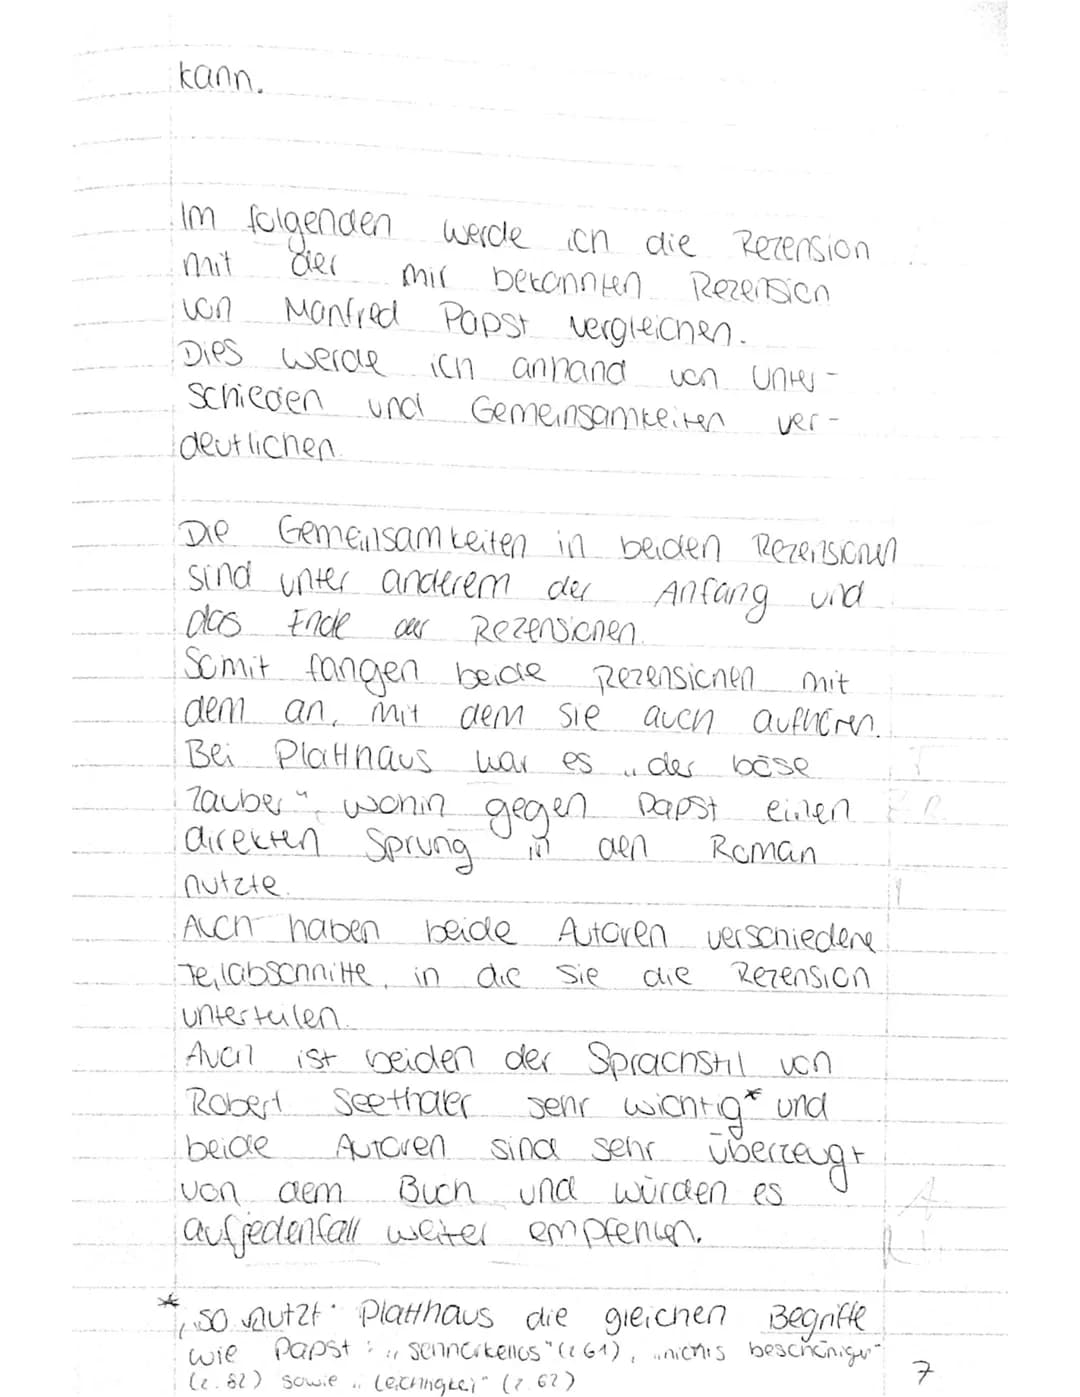 kann.
Im folgenden werde ich die Rezension
mit der mir bekannten Rezension
von Manfred Papst vergleichen.
Dies werde ich anhand von Unter-
schieden und Gemeinsamkeiten ver-
deutlichen.
Die Gemeinsamkeiten in beiden Rezensionen
sind unter anderem der Anfang und
das Ende der Rezensionen.
Somit fangen beide Rezensionen mit
dem an, mit dem sie auch aufhören.
Bei Platthaus war es „der böse
Zauber“, wohin gegen Papst einen
direkten Sprung in den Roman
nutzte.
Auch haben beide Autoren verschiedene
Teilabschnitte, in die sie die Rezension
unterteilen.
Auch ist beiden der Sprachstil von
Robert Seethaler sehr wichtig* und
beide Autoren sind sehr überzeugt
von dem Buch und würden es
aufjedenfall weiter empfehlen.
*, so nutzt Platthaus die gleichen Begriffe
wie Papst: „schnörkellos“ (Z.61), „nichts beschönigt“
(Z.82) sowie „Leichtigkeit“ (Z.62)
7